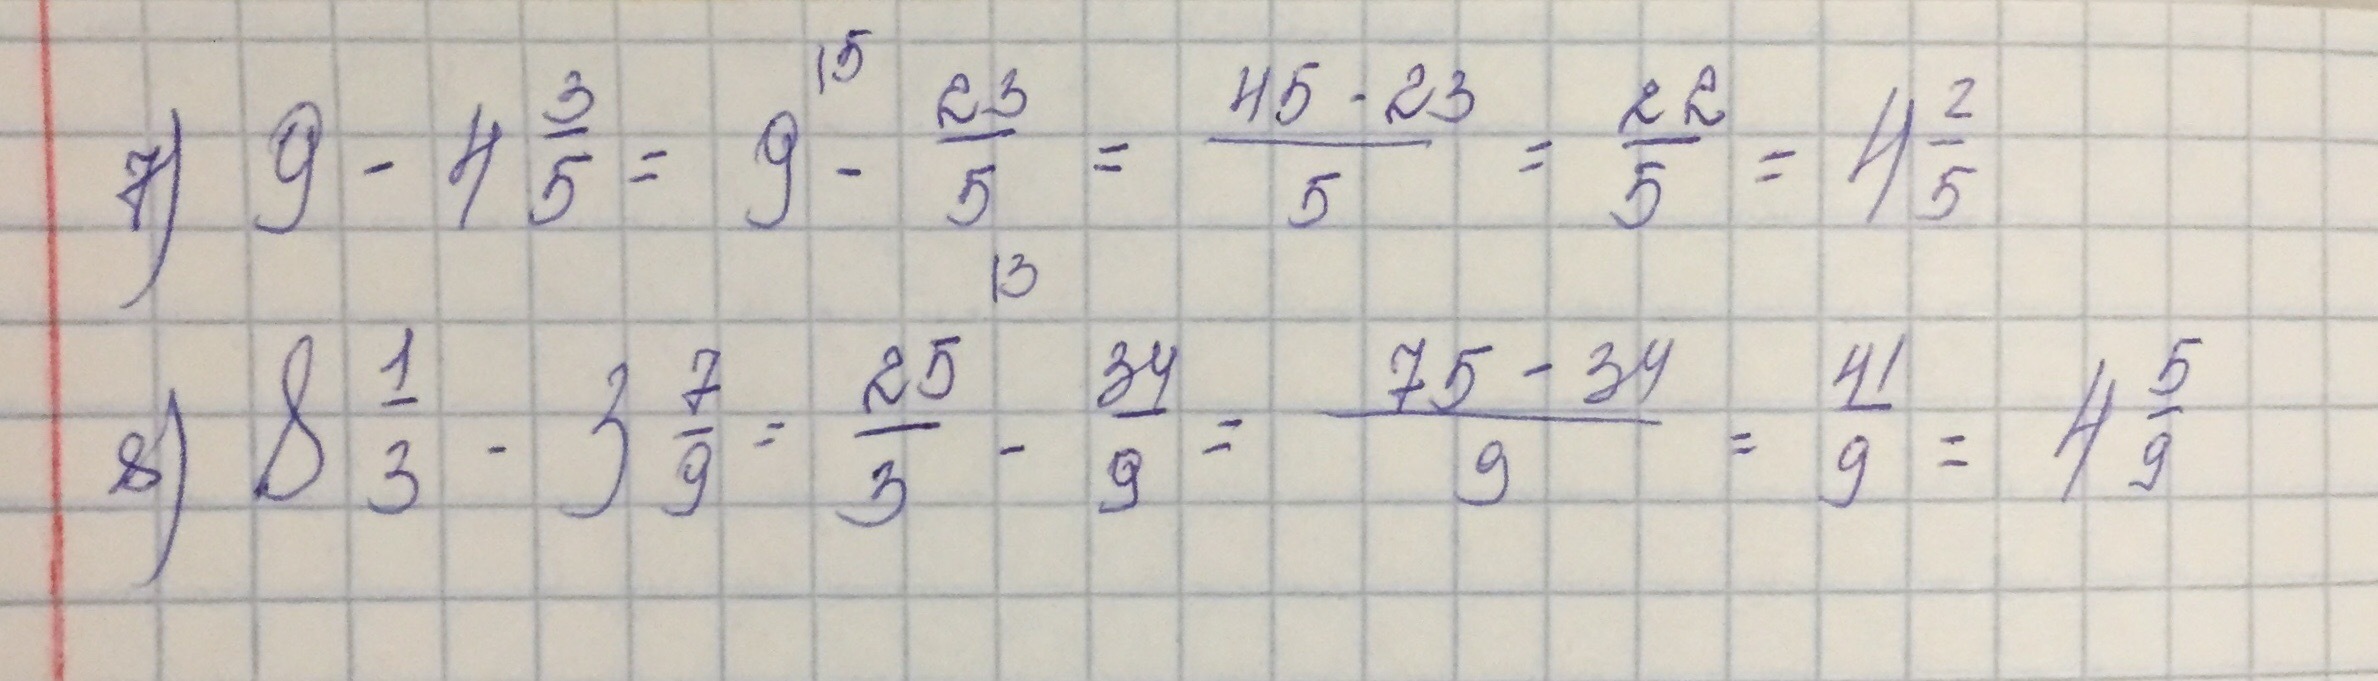 7) 9 - 4 3/5 = 9 |5 - 23/5 = (45 - 23)/5 = 22/5 = 4 2/5
8) 8 1/3 - 3 7/9 = 25/3 |3 - 34/9 = (75 - 34)/9 = 41/9 = 4 5/9